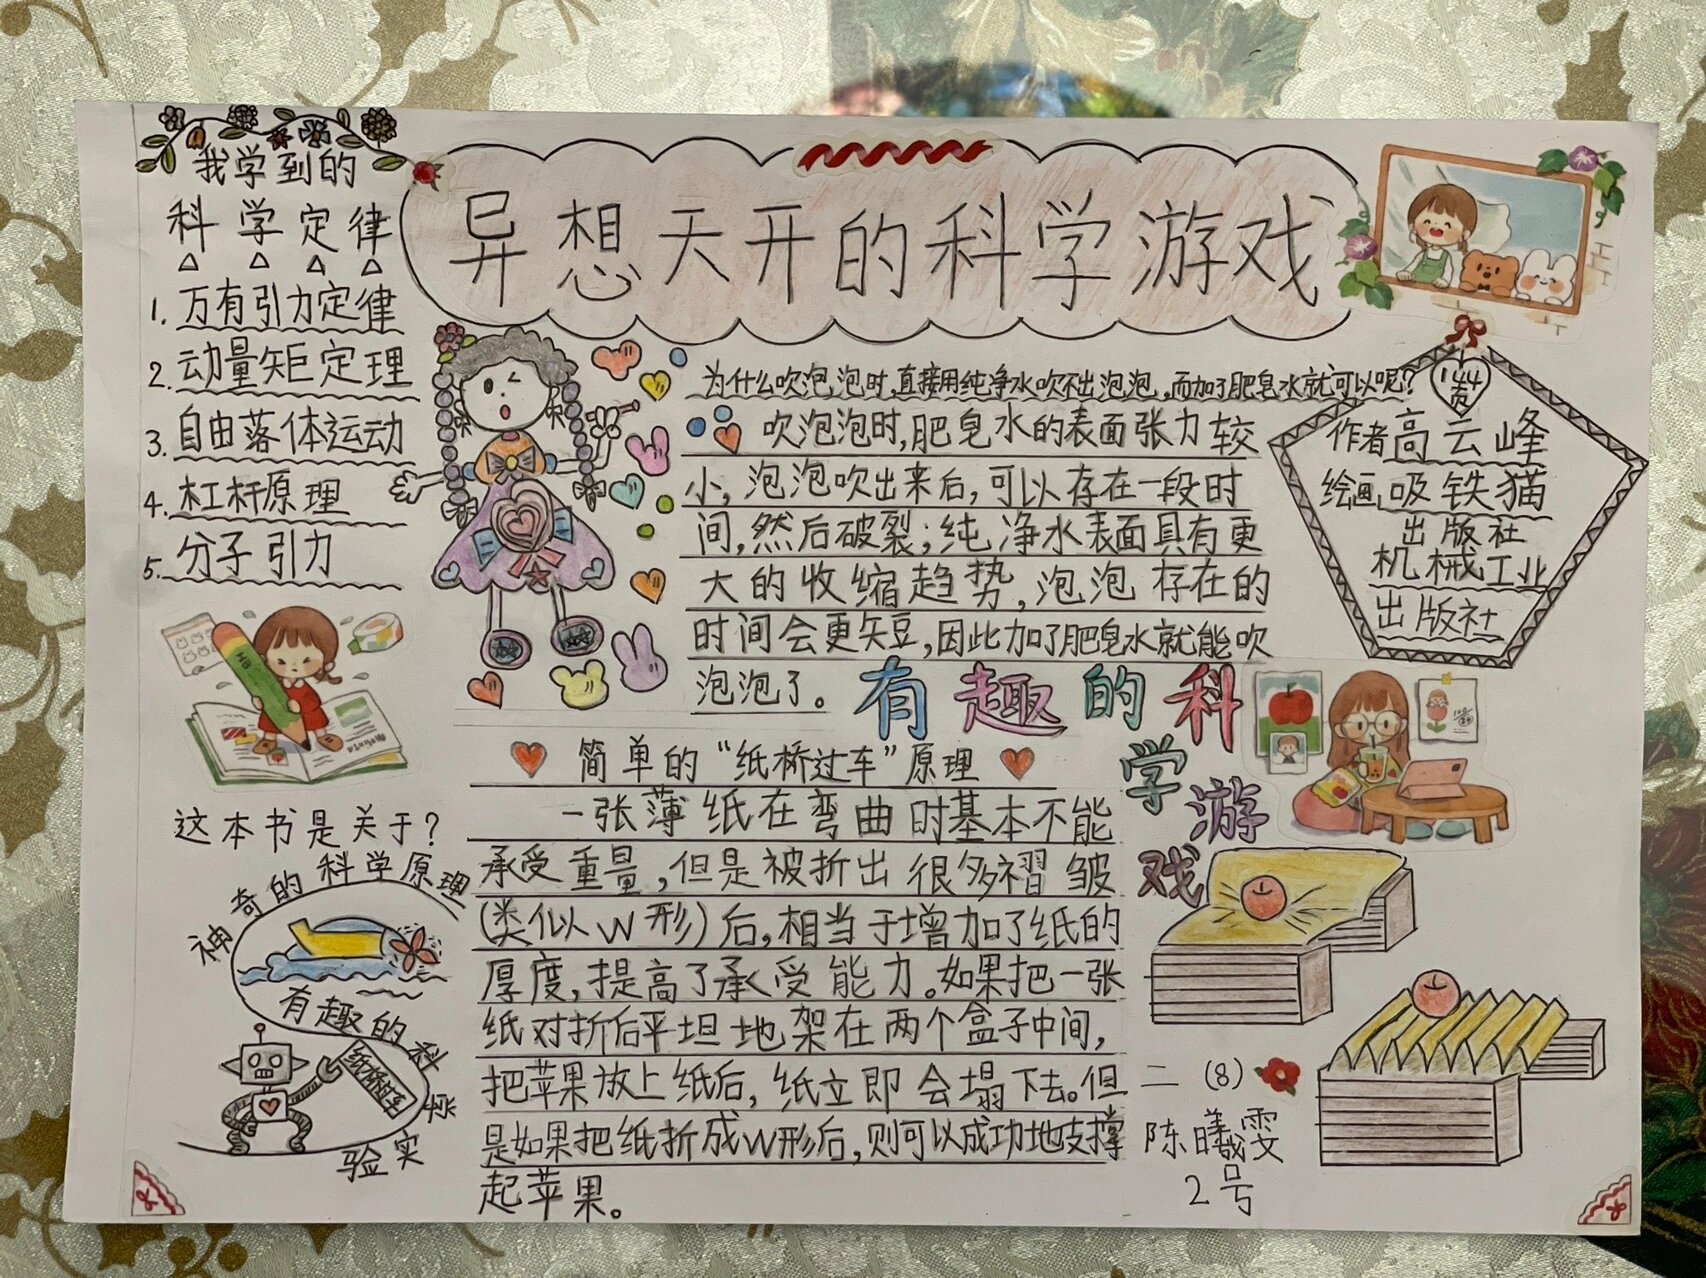 异想天开的科学游戏
我学到的
科学定律
1.万有引力定律
2.动量矩定理
3.自由落体运动
4.杠杆原理
5.分子引力
为什么吹泡泡时,直接用纯净水吹不出泡泡,而加了肥皂水就可以呢?
吹泡泡时,肥皂水的表面张力较
小,泡泡吹出来后,可以存在一段时
间,然后破裂;纯净水表面具有更
大的收缩趋势,泡泡存在的
时间会更短,因此加了肥皂水就能吹
泡泡了。
作者高云峰
绘画吸铁猫
出版社
机械工业
出版社
有趣的科
学游
戏
简单的“纸桥过车”原理
一张薄纸在弯曲时基本不能
承受重量,但是被折出很多褶皱
(类似W形)后,相当于增加了纸的
厚度,提高了承受能力。如果把一张
纸对折后平坦地架在两个盒子中间,
把苹果放上纸后,纸立即会塌下去。但
是如果把纸折成W形后,则可以成功地支撑
起苹果。
这本书是关于?
神奇的科学原理
有趣的科学
实验
纸桥过车
HB
二(8)
陈曦雯
2号